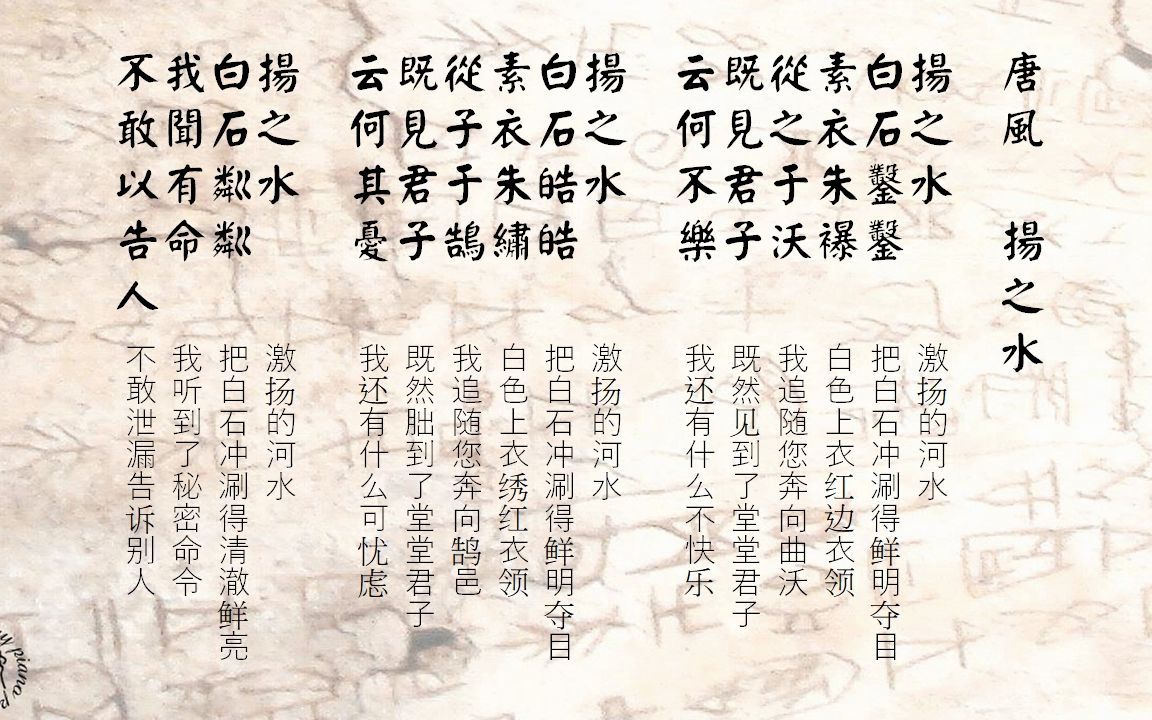 唐風 揚之水
揚之水
白石鑿鑿
素衣朱襮
從之于沃
既見君子
云何不樂
激扬的河水
把白石冲涮得鲜明夺目
白色上衣红边衣领
我追随您奔向曲沃
既然见到了堂堂君子
我还有什么不快乐
揚之水
白石皓皓
素衣朱繡
從子于鵠
既見君子
云何其憂
激扬的河水
把白石冲涮得鲜明夺目
白色上衣绣红衣领
我追随您奔向鹄邑
既然朏到了堂堂君子
我还有什么可忧虑
揚之水
白石粼粼
我聞有命
不敢以告人
激扬的河水
把白石冲涮得清澈鲜亮
我听到了秘密命令
不敢泄漏告诉别人
piano